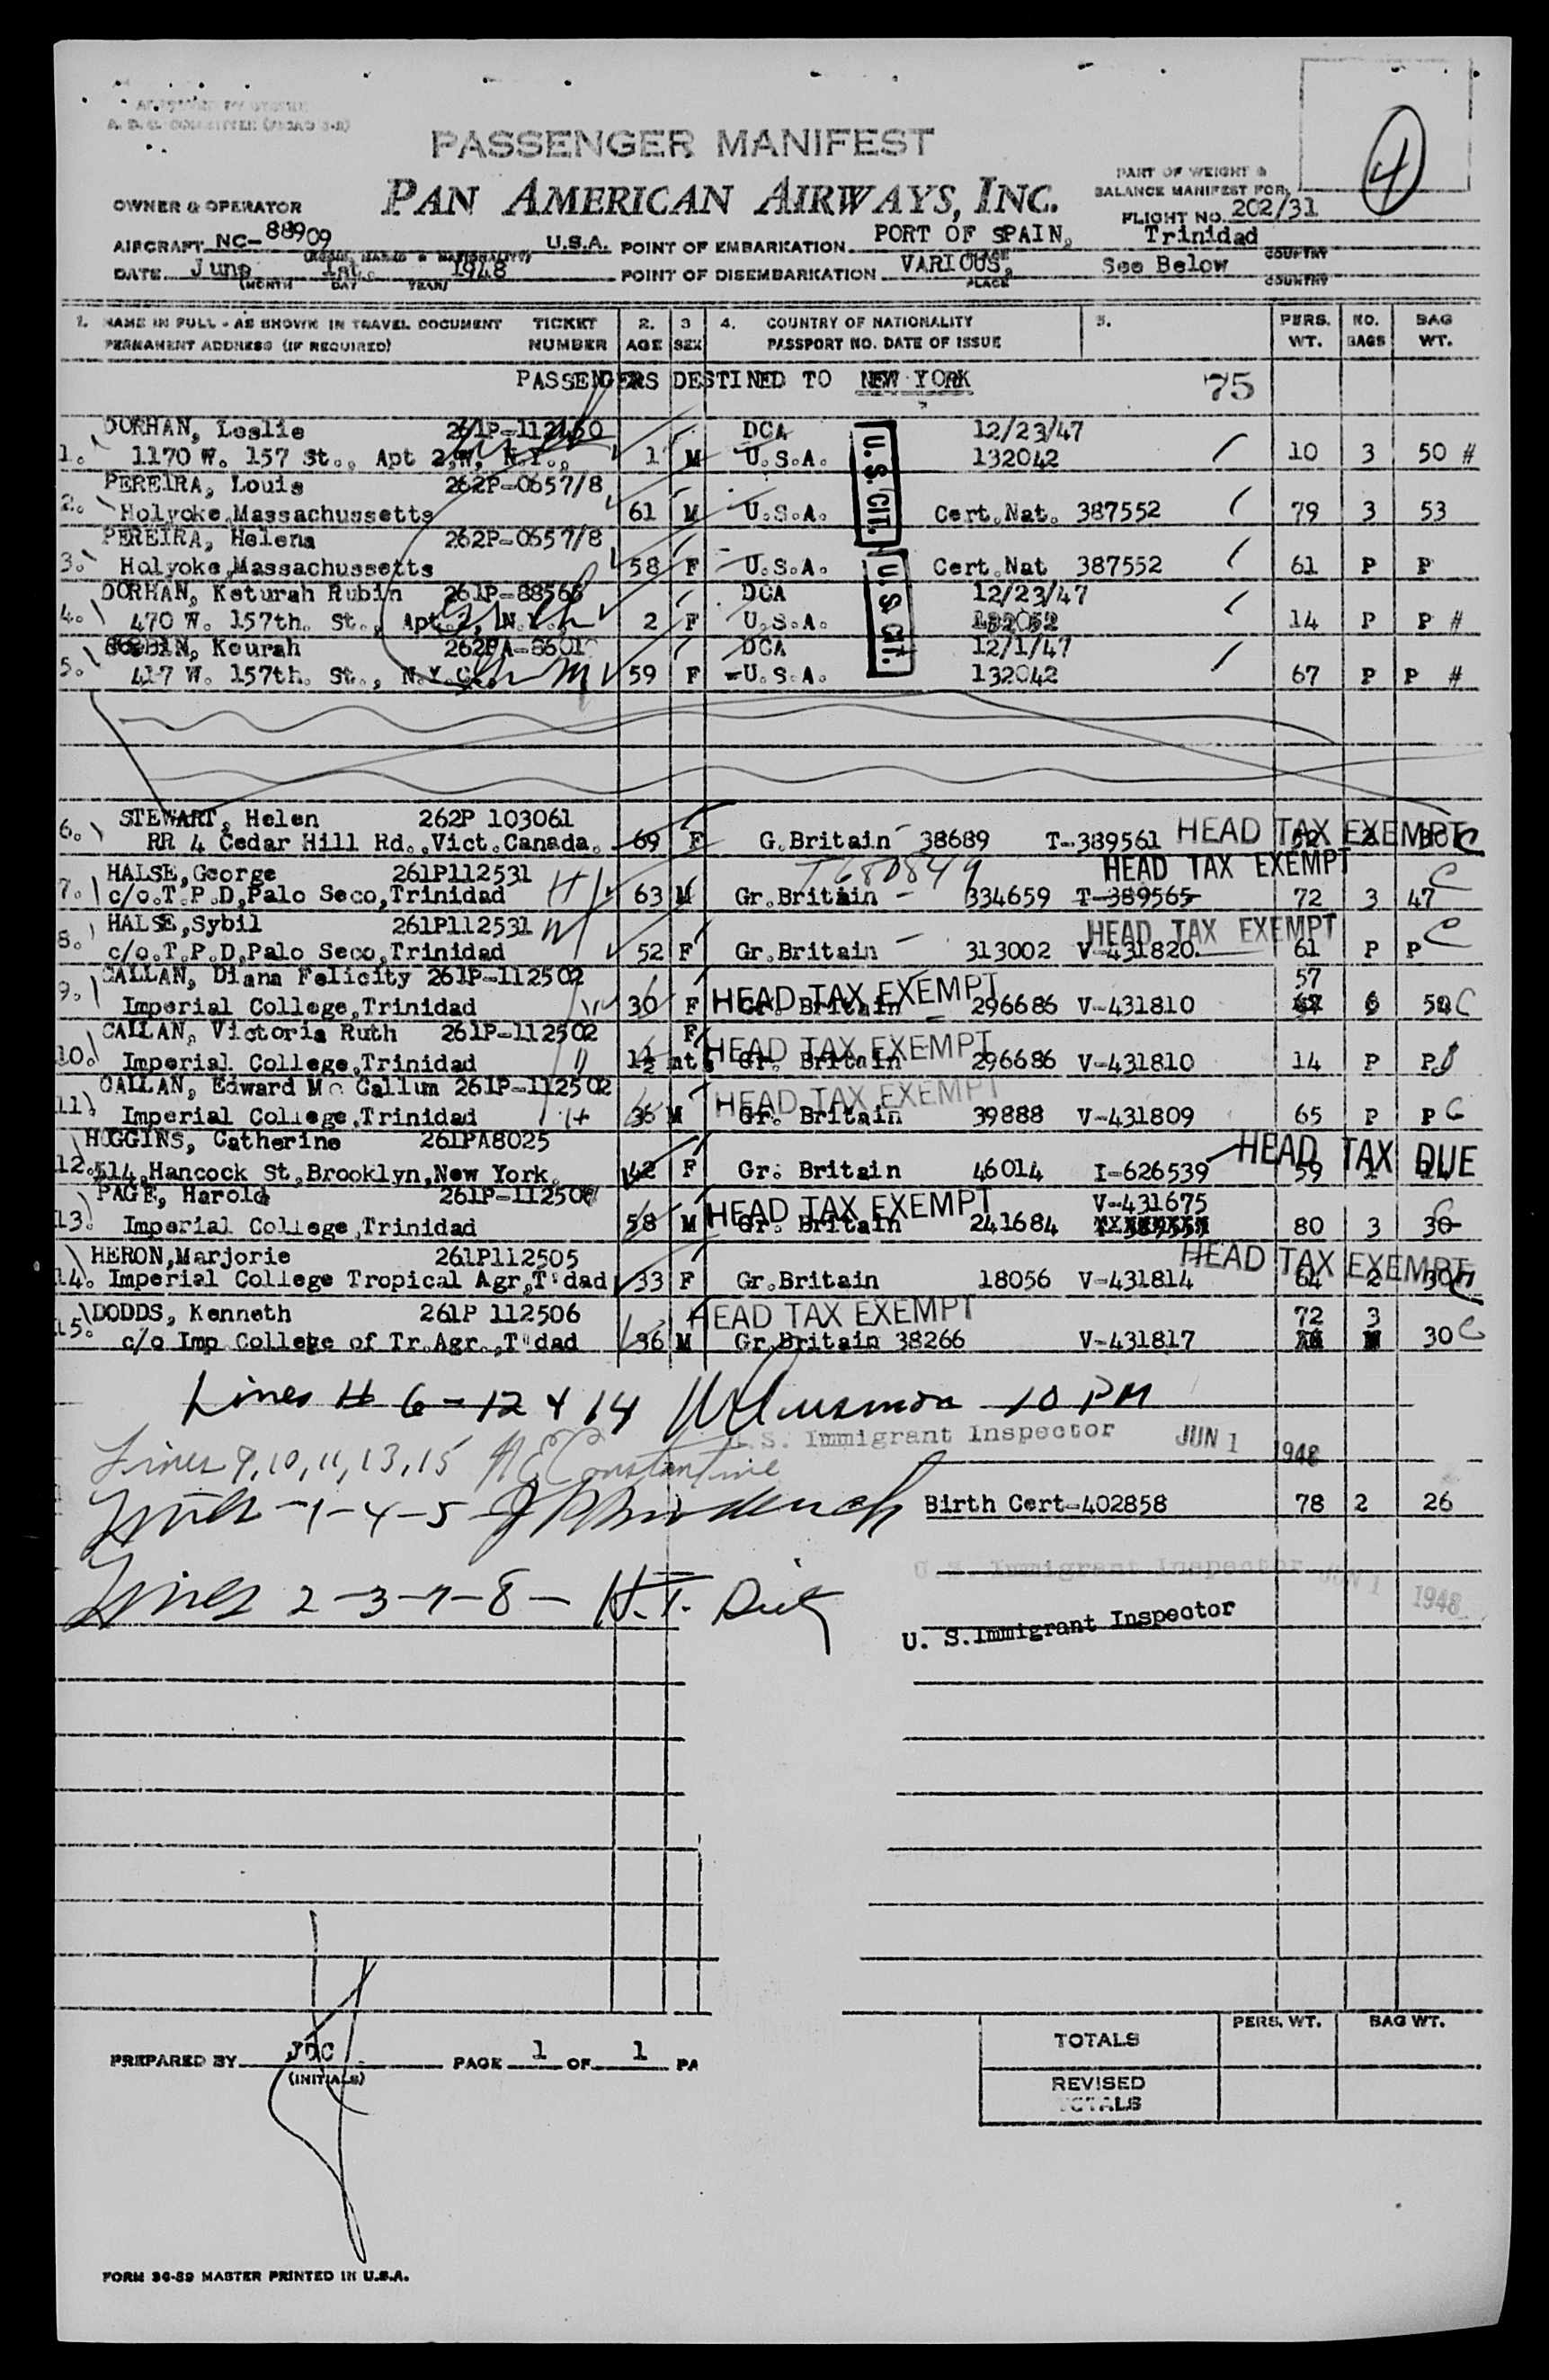 A. D. C. COMMITTEE
PASSENGER MANIFEST
4
PAN AMERICAN AIRWAYS, INC.
PART OF WEIGHT &
BALANCE MANIFEST FOR
FLIGHT NO. 202/31
OWNER & OPERATOR
AIRCRAFT NC-88909 U.S.A. POINT OF EMBARKATION PORT OF SPAIN, Trinidad
COUNTRY
DATE June 1st. 1948 POINT OF DISEMBARKATION VARIOUS, See Below
(MONTH DAY YEAR) PLACE COUNTRY
1. NAME IN FULL - AS SHOWN IN TRAVEL DOCUMENT TICKET 2. 3 4. COUNTRY OF NATIONALITY 5. PERS. NO. BAG
PERMANENT ADDRESS (IF REQUIRED) NUMBER AGE SEX PASSPORT NO. DATE OF ISSUE WT. BAGS WT.
PASSENGERS DESTINED TO NEW YORK 75
DORHAN, Leslie 261P-112450 DCA 12/23/47
1. 1170 W. 157 St., Apt 2,W, N.Y., 1 M U.S.A. 132042 10 3 50 #
PEREIRA, Louis 262P-0657/8
2. Holyoke,Massachussetts 61 M U.S.A. Cert.Nat. 387552 79 3 53
U.S.CIT.
PEREIRA, Helena 262P-0657/8
3. Holyoke,Massachussetts 58 F U.S.A. Cert.Nat 387552 61 P P
DORHAN, Keturah Rubin 261P-88566 DCA 12/23/47
4. 470 W. 157th. St., Apt.2, N.Y. 2 F U.S.A. 14 P P #
U.S.CIT.
Kourah 262PA-8601 DCA 12/1/47
5. 417 W. 157th. St., N.Y.C. 59 F U.S.A. 132042 67 P P #
STEWART, Helen 262P 103061
6. RR 4 Cedar Hill Rd.,Vict.Canada. 69 F G.Britain 38689 T-389561 HEAD TAX EXEMPT C
HALSE,George 261P112531 H T680849 HEAD TAX EXEMPT C
7. c/o.T.P.D,Palo Seco,Trinidad 63 M Gr.Britain 334659 T-389565 72 3 47
HALSE,Sybil 261P112531 HEAD TAX EXEMPT C
8. c/o.T.P.D,Palo Seco,Trinidad 52 F Gr.Britain 313002 V-431820. 61 P P
CALLAN, Diana Felicity 261P-112502 HEAD TAX EXEMPT 57
9. Imperial College,Trinidad 30 F Gr. Britain 296686 V-431810 C
CALLAN, Victoria Ruth 261P-112502 F HEAD TAX EXEMPT
10. Imperial College,Trinidad 1½ nt. Gr. Britain 296686 V-431810 14 P P
CALLAN, Edward Mc Callum 261P-112502 HEAD TAX EXEMPT
11. Imperial College,Trinidad 36 M Gr. Britain 39888 V-431809 65 P P C
HUGGINS, Catherine 261PA8025 HEAD TAX DUE
12. 514,Hancock St,Brooklyn,New York. 42 F Gr. Britain 46014 I-626539 59 1
PAGE, Harold HEAD TAX EXEMPT V-431675 C
13. Imperial College,Trinidad 58 M Gr. Britain 241684 80 3 30
HERON,Marjorie 261P112505 HEAD TAX EXEMPT
14. Imperial College Tropical Agr,T'dad 33 F Gr.Britain 18056 V-431814 64 2 30
DODDS, Kenneth 261P 112506 HEAD TAX EXEMPT 72 3
15. c/o Imp College of Tr.Agr.,T'dad 36 M Gr.Britain 38266 V-431817 30 C
Lines # 6-12 & 14 10 PM
U.S. Immigrant Inspector JUN 1 1948
Lines 9,10,11,13,15 Constantine
Lines -1-4-5- Birth Cert-402858 78 2 26
U.S. Immigrant Inspector JUN 1 1948
Lines 2-3-7-8- H.T.
U. S.Immigrant Inspector
TOTALS PERS. WT. BAG WT.
PREPARED BY JDC PAGE 1 OF 1 PA
(INITIALS)
REVISED
TOTALS
FORM 36-89 MASTER PRINTED IN U.S.A.